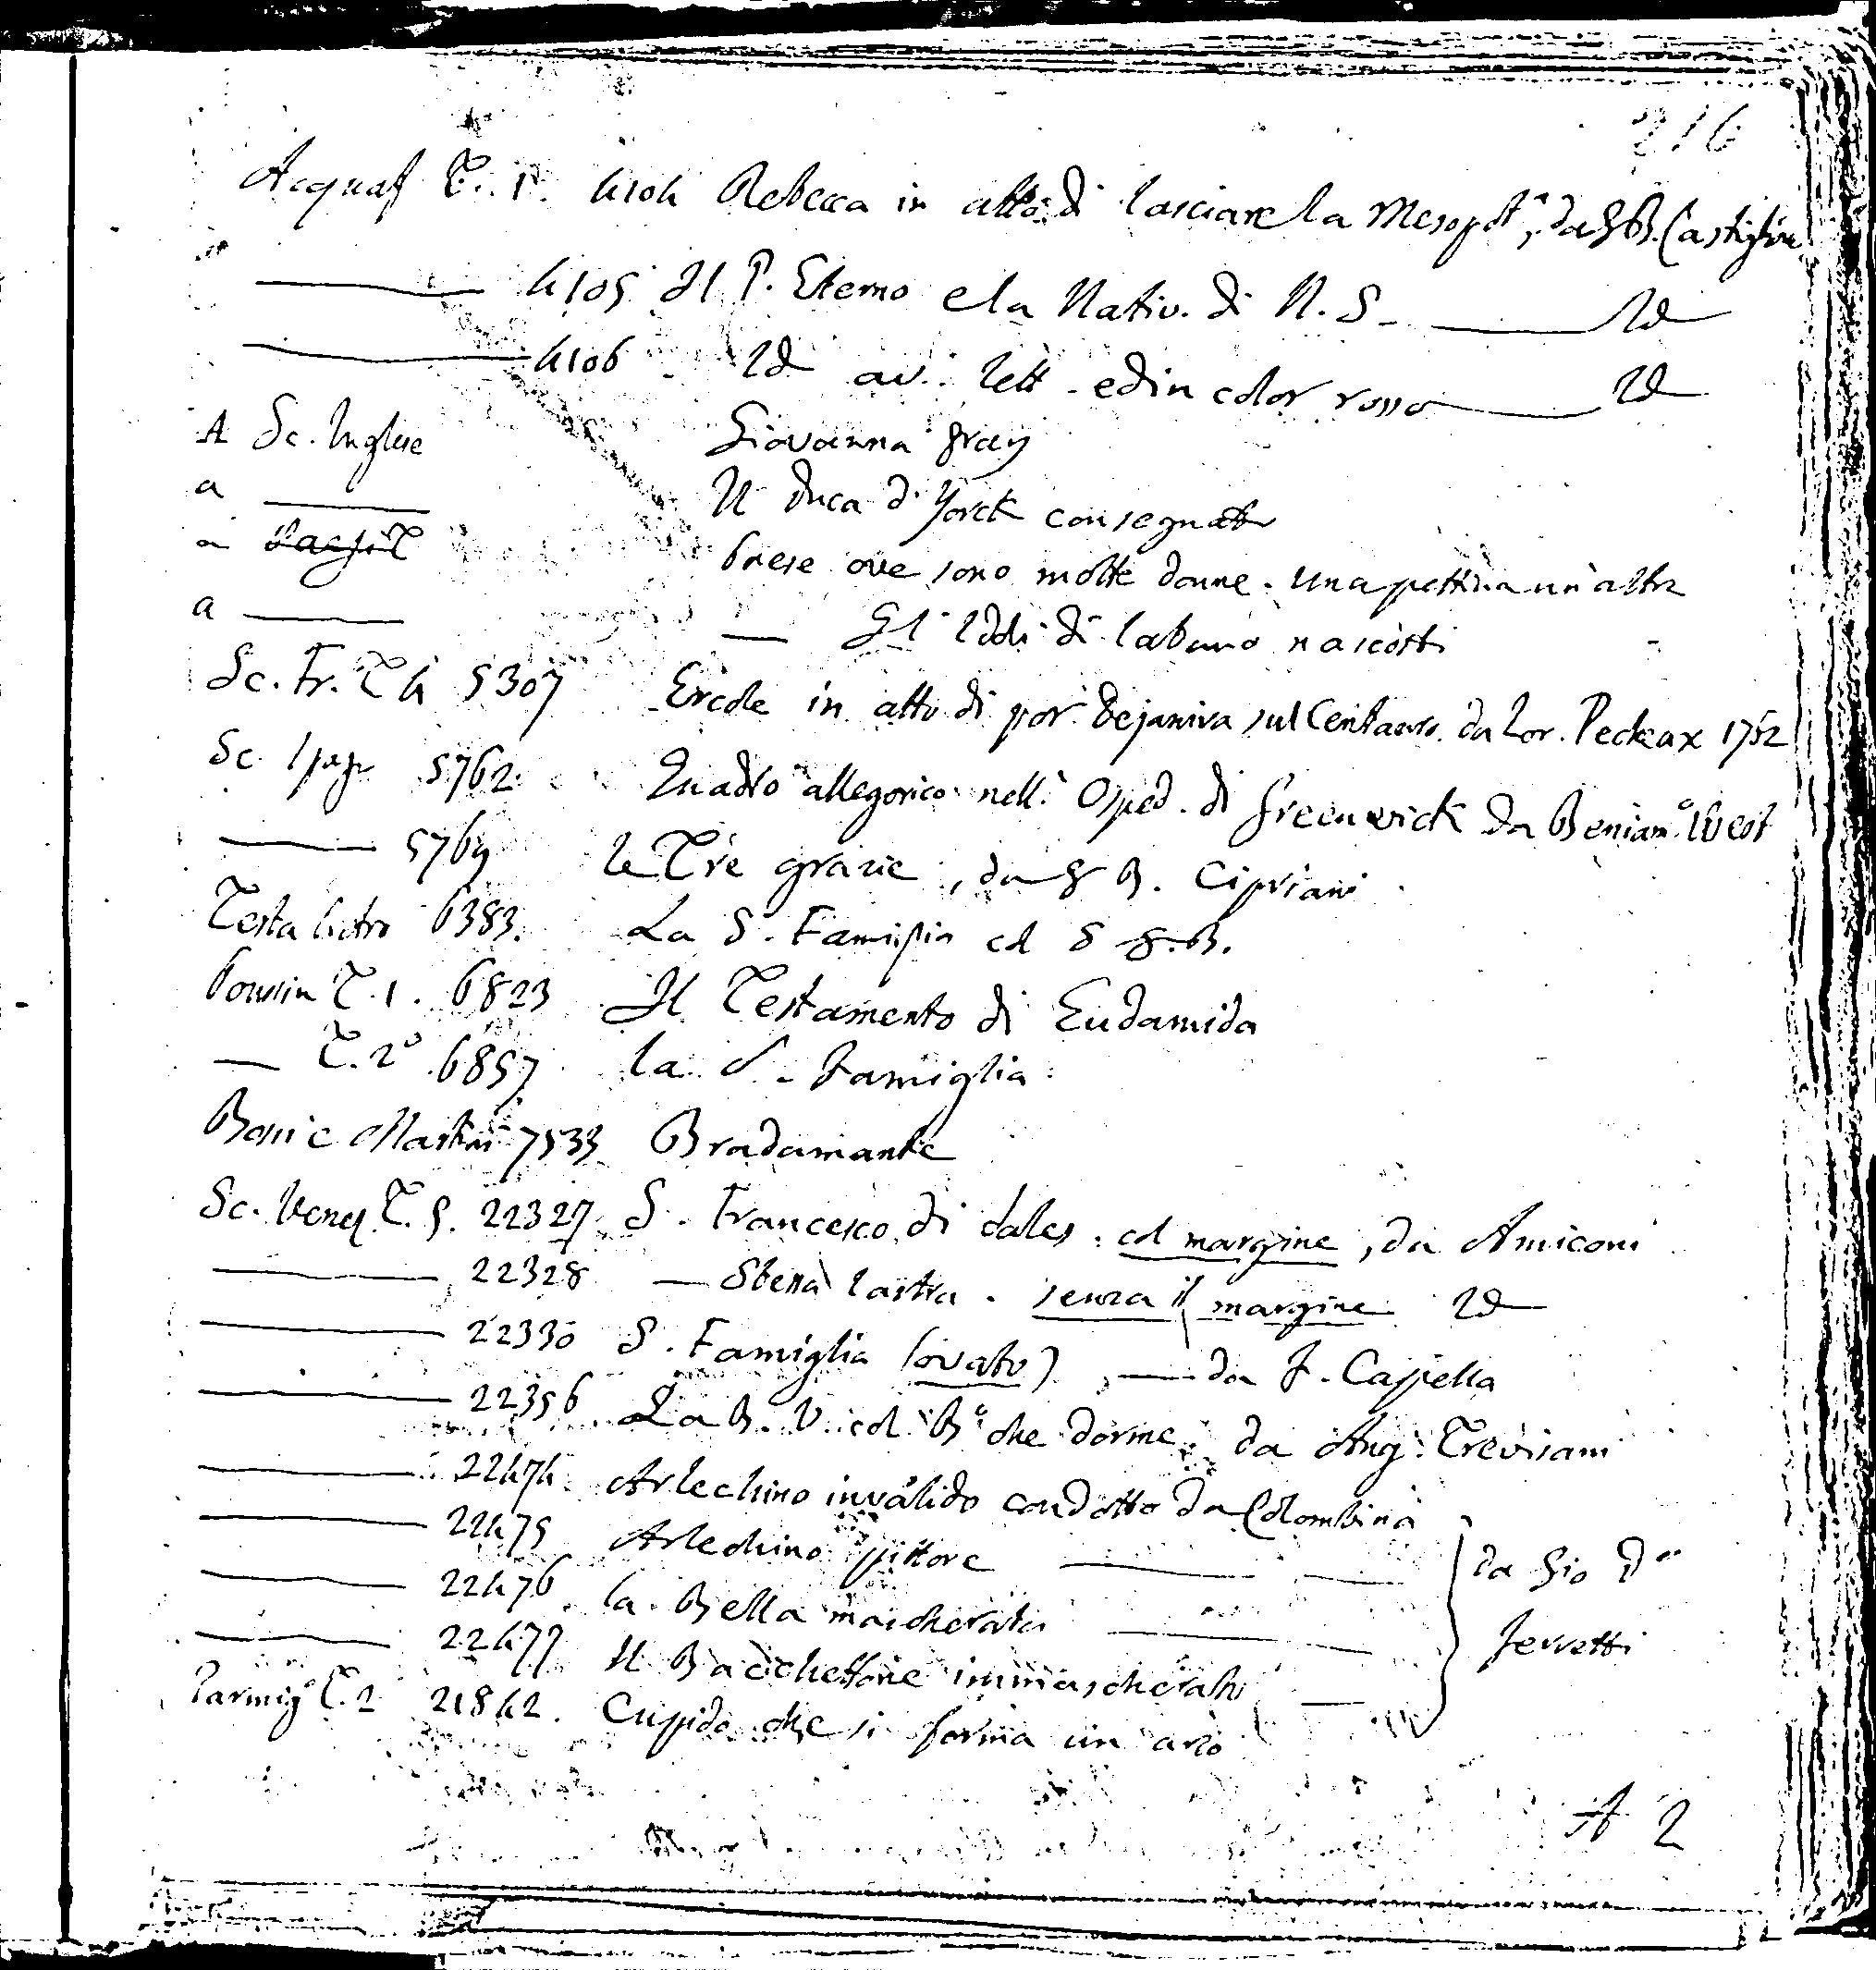 216
Acquaf T. 1. 4104 Rebecca in atto di lasciare la Mesopot.ª, da G B. Castiglione
——— 4105 Il P. Eterno e la Nativ. di N. S. ——— Id
——— 4106 Id av. lett. ed in color rosso ——— Id
A Sc. Inglese Giovanna Gray
a ——— Il Duca d'Yorck consegnato
a Paese ove sono molte donne. Una pettina un'altra
a ——— — Gl'Idoli di Labano nascosti
Sc. Fr. T 4 5307 Ercole in atto di por Dejanira sul Centauro. da Lor. Pecheax 1752
Sc. Spag 5762. Quadro allegorico nell'Osped. di Greenwick da Beniam.º West
——— 5769 Le Tre grazie, da G B. Cipriani
Testa 6383. La S. Famiglia col S G. B.
Poussin T. 1. 6823 Il Testamento di Eudamida
— T. 2º 6857 La S. Famiglia
Boni e Martini 7533 Bradamante
Sc. Venez. T. 5. 22327 S. Francesco di Sales. col margine, da Amiconi
——— 22328 — Stessa lastra. senza il margine Id
——— 22330 S. Famiglia (ovato), — da F. Cappella
——— 22356 La B. V. col Bº che dorme, da Ang. Trevisani
——— 22474 Arlechino invalido condotto da Colombina
——— 22475 Arlechino pittore ———
——— 22476 La Bella mascherata ——— da Gio Dº
——— 22477 Il Bacchettone immascherato — Ferretti
Parmig T. 2 21842. Cupido che si forma un arco
A 2